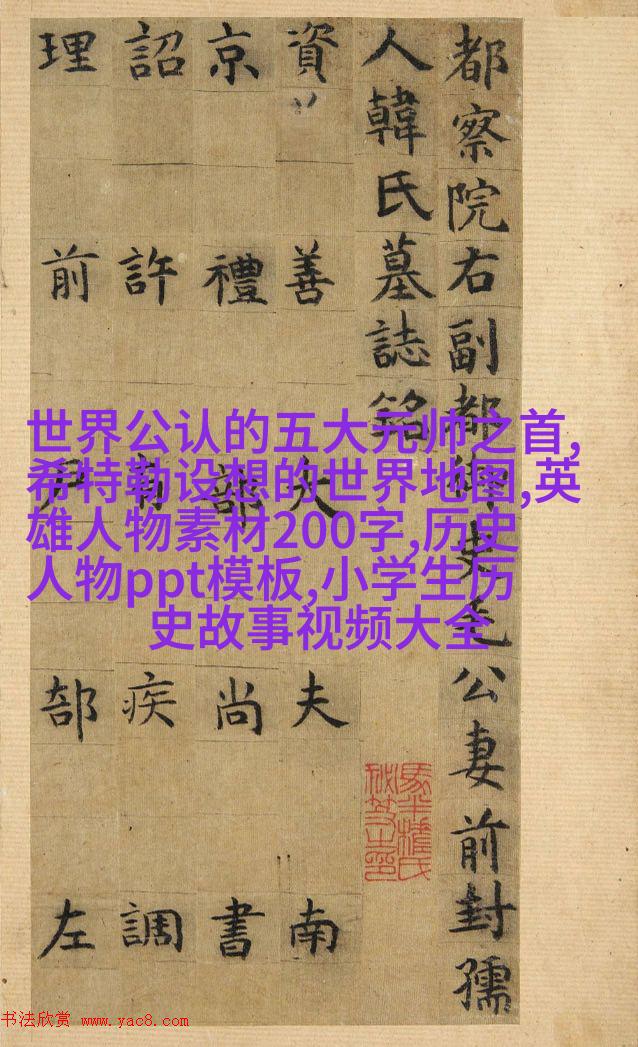 都察院右副都御史毛公妻前封孺
人韓氏墓誌銘
資善大夫南
京禮部尚書
詔許疾調
理前部左
世界公认的五大元帅之首,
希特勒设想的世界地图,英
雄人物素材200字,历史
人物ppt模板,小学生历
史故事视频大全
书法欣赏 www.yac8.com